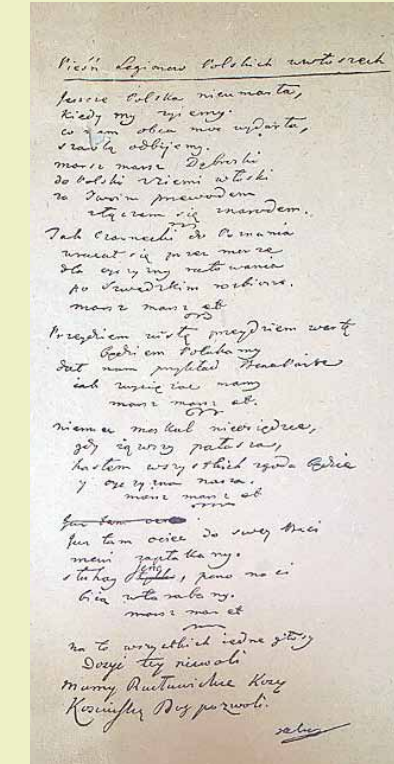 Pieśń Legionow Polskich wewłoszech
Jeszcze Polska nieumarła,
kiedy my żyiemy.
co nam obca moc wydarła,
szablą odbijemy.
marsz marsz Dąbroski
do Polski zziemi włoski
za Twoim przewodem
złączem się znarodem.
Jak Czarnecki do Poznania
wracał się przez morze
dla oyczyzny ratowania
po Szwedzkim rozbiorze.
marsz marsz etc
Przeydziem wisłę przeydziem wartę
będziem Polakamy
dał nam przykład Bonaparte
iak zwyciężać mamy
marsz marsz etc.
niemiec moskal nieosiędzie,
gdy iąwszy pałasza,
hasłem wszystkich zgoda będzie
y oyczyzna nasza.
marsz marsz etc
Już tam ocie
Już tam ociec do swey Basi
mówi zapłakany.
słuchay jeno, pono nasi
biią wtarabany.
marsz mar et
na to wszystkich iedne głosy
Dosyć tey niewoli
mamy Racławickie Kosy
Kosciuszkę Bog pozwoli.